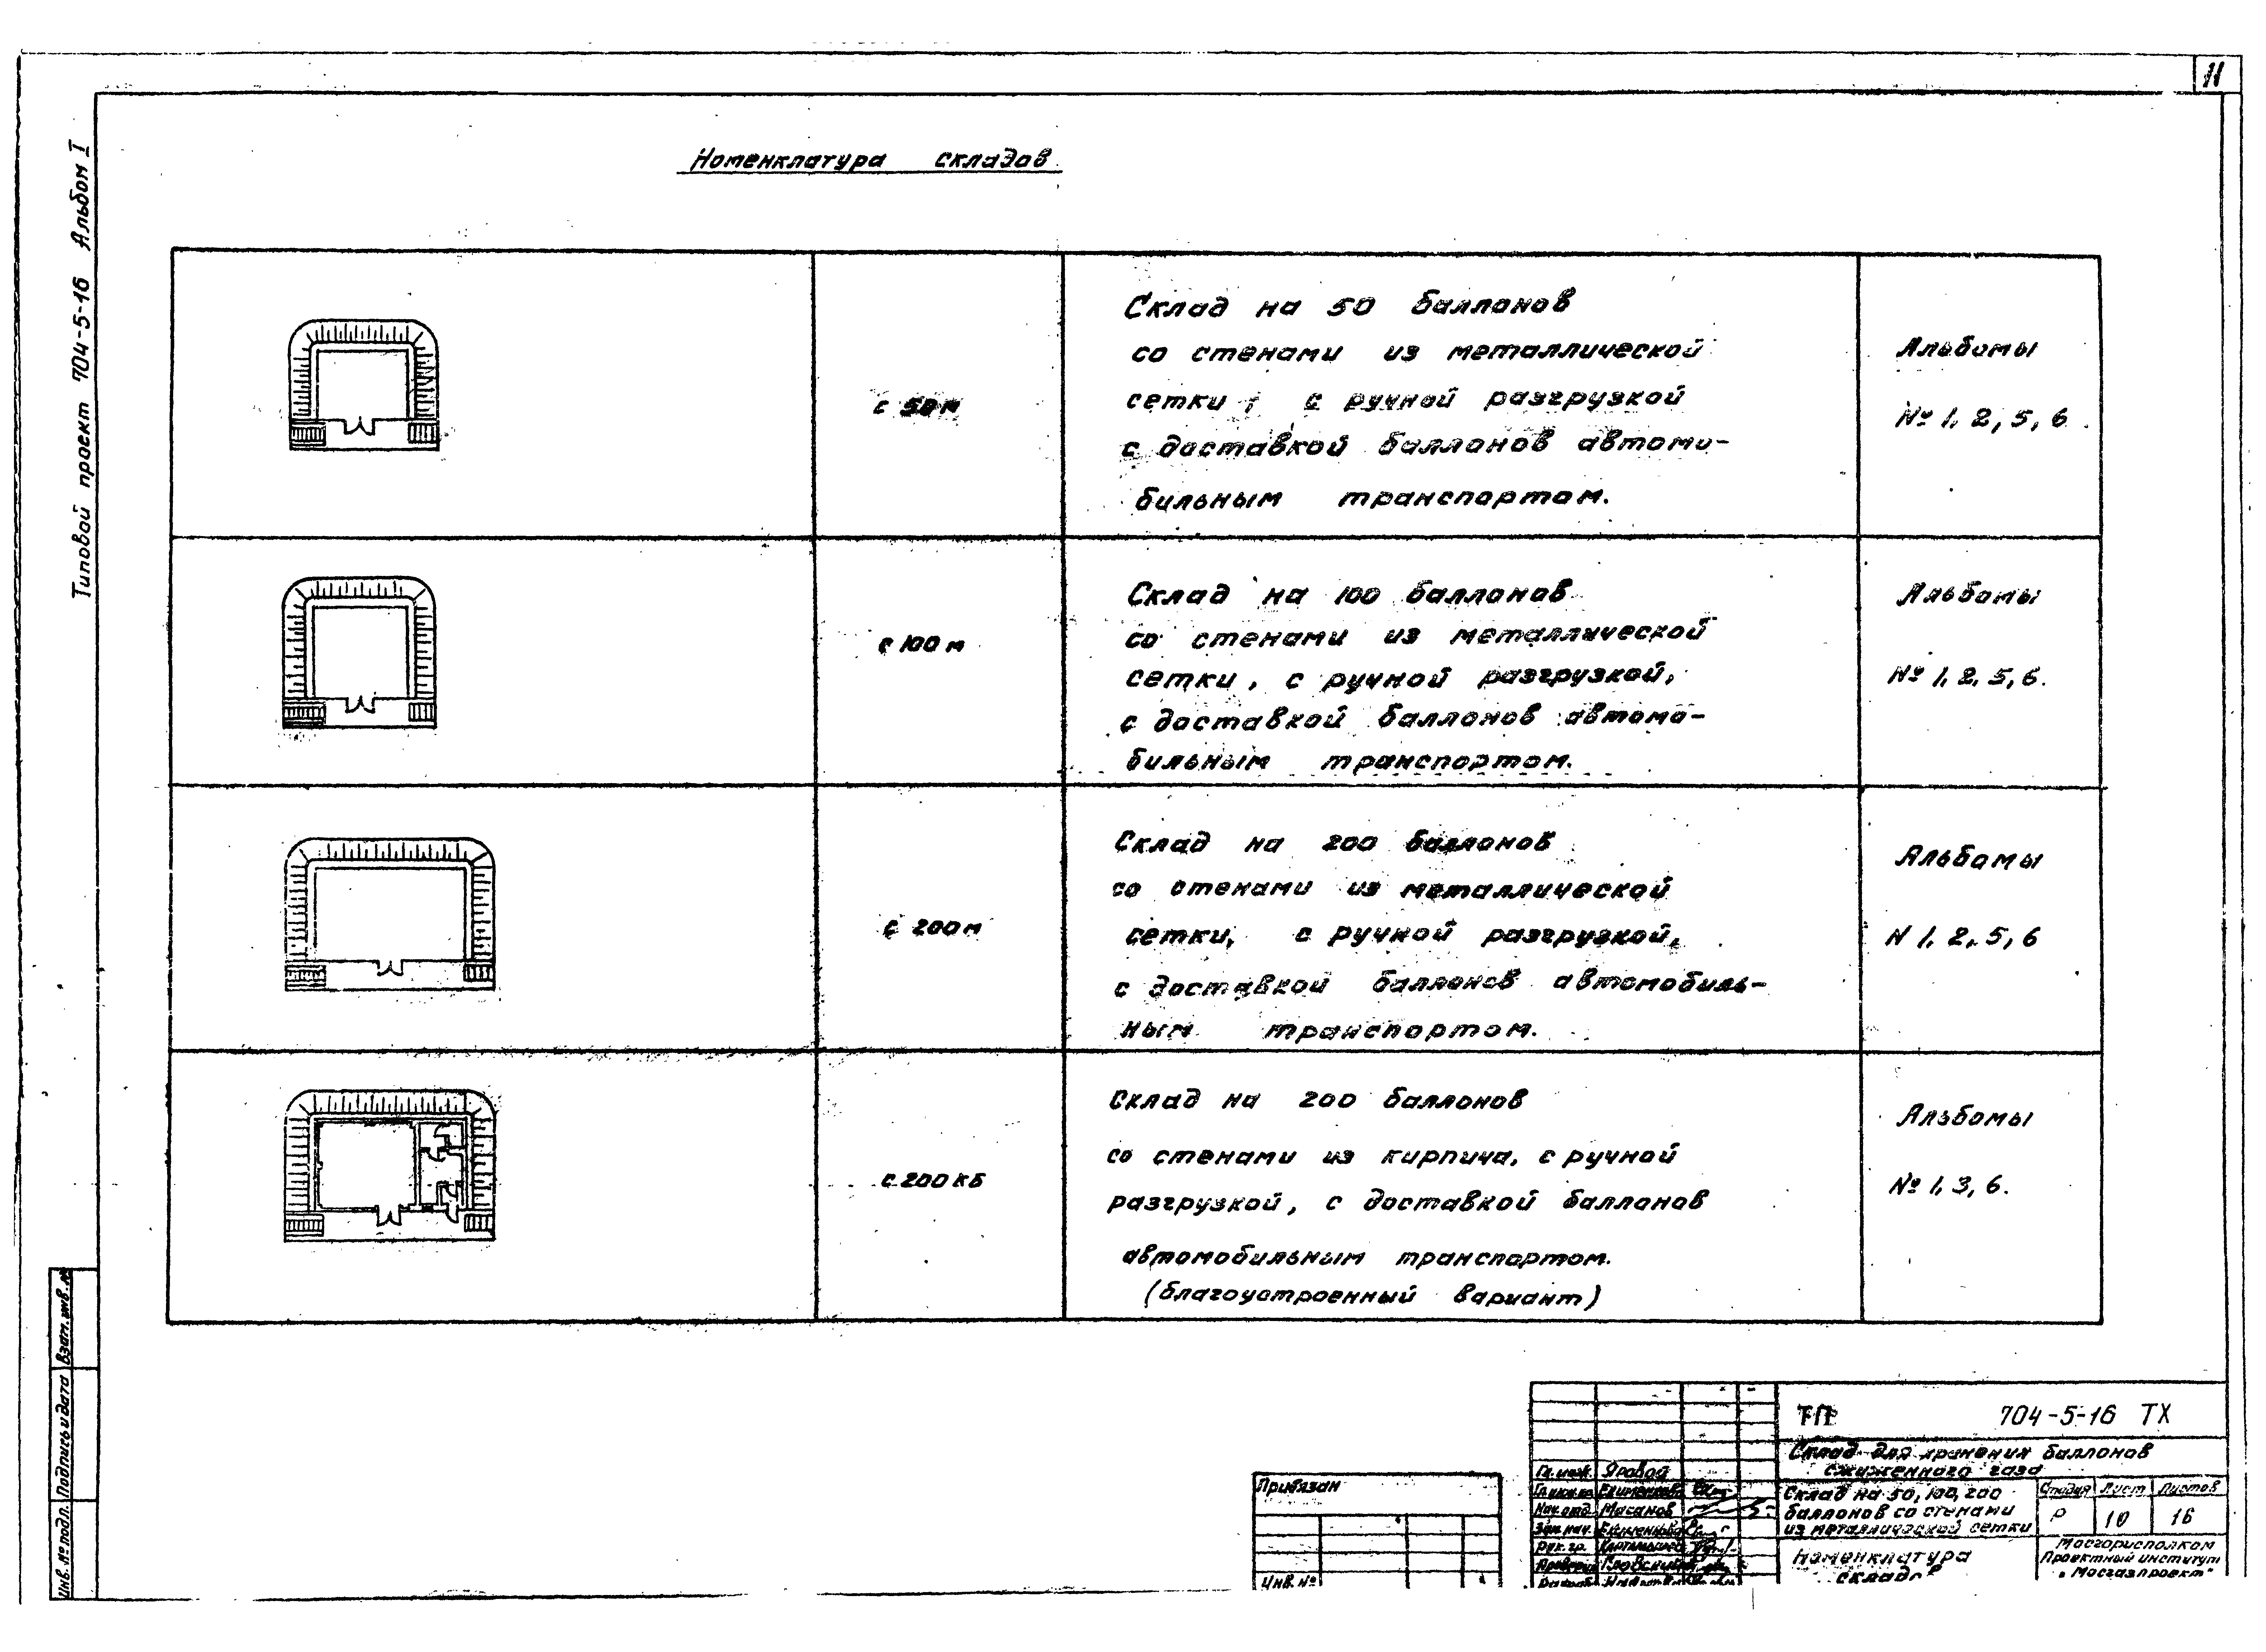 11
Типовой проект 704-5-16 Альбом I
Номенклатура складов
с 50 м
Склад на 50 баллонов
со стенами из металлической
сетки, с ручной разгрузкой
с доставкой баллонов автомо-
бильным транспортом.
Альбомы
№ 1, 2, 5, 6.
с 100 м
Склад на 100 баллонов
со стенами из металлической
сетки, с ручной разгрузкой,
с доставкой баллонов автомо-
бильным транспортом.
Альбомы
№ 1, 2, 5, 6.
с 200 м
Склад на 200 баллонов
со стенами из металлической
сетки, с ручной разгрузкой,
с доставкой баллонов автомобиль-
ным транспортом.
Альбомы
N 1, 2, 5, 6
с 200 кб
Склад на 200 баллонов
со стенами из кирпича, с ручной
разгрузкой, с доставкой баллонов
автомобильным транспортом.
(благоустроенный вариант)
Альбомы
№ 1, 3, 6.
Инв. № подл. Подпись и дата Взам. инв. №
Привязан
Инв. №
ТП 704-5-16 ТХ
Склад для хранения баллонов
сжиженного газа
Склад на 50, 100, 200
баллонов со стенами
из металлической сетки
Стадия Лист Листов
Р 10 16
Номенклатура
складов
Мосгорисполком
Проектный институт
"Мосгазпроект"
Гл. инж. Яровой
Нач. отд. Мисанов
Зам. нач. Екименкова
Рук. гр.